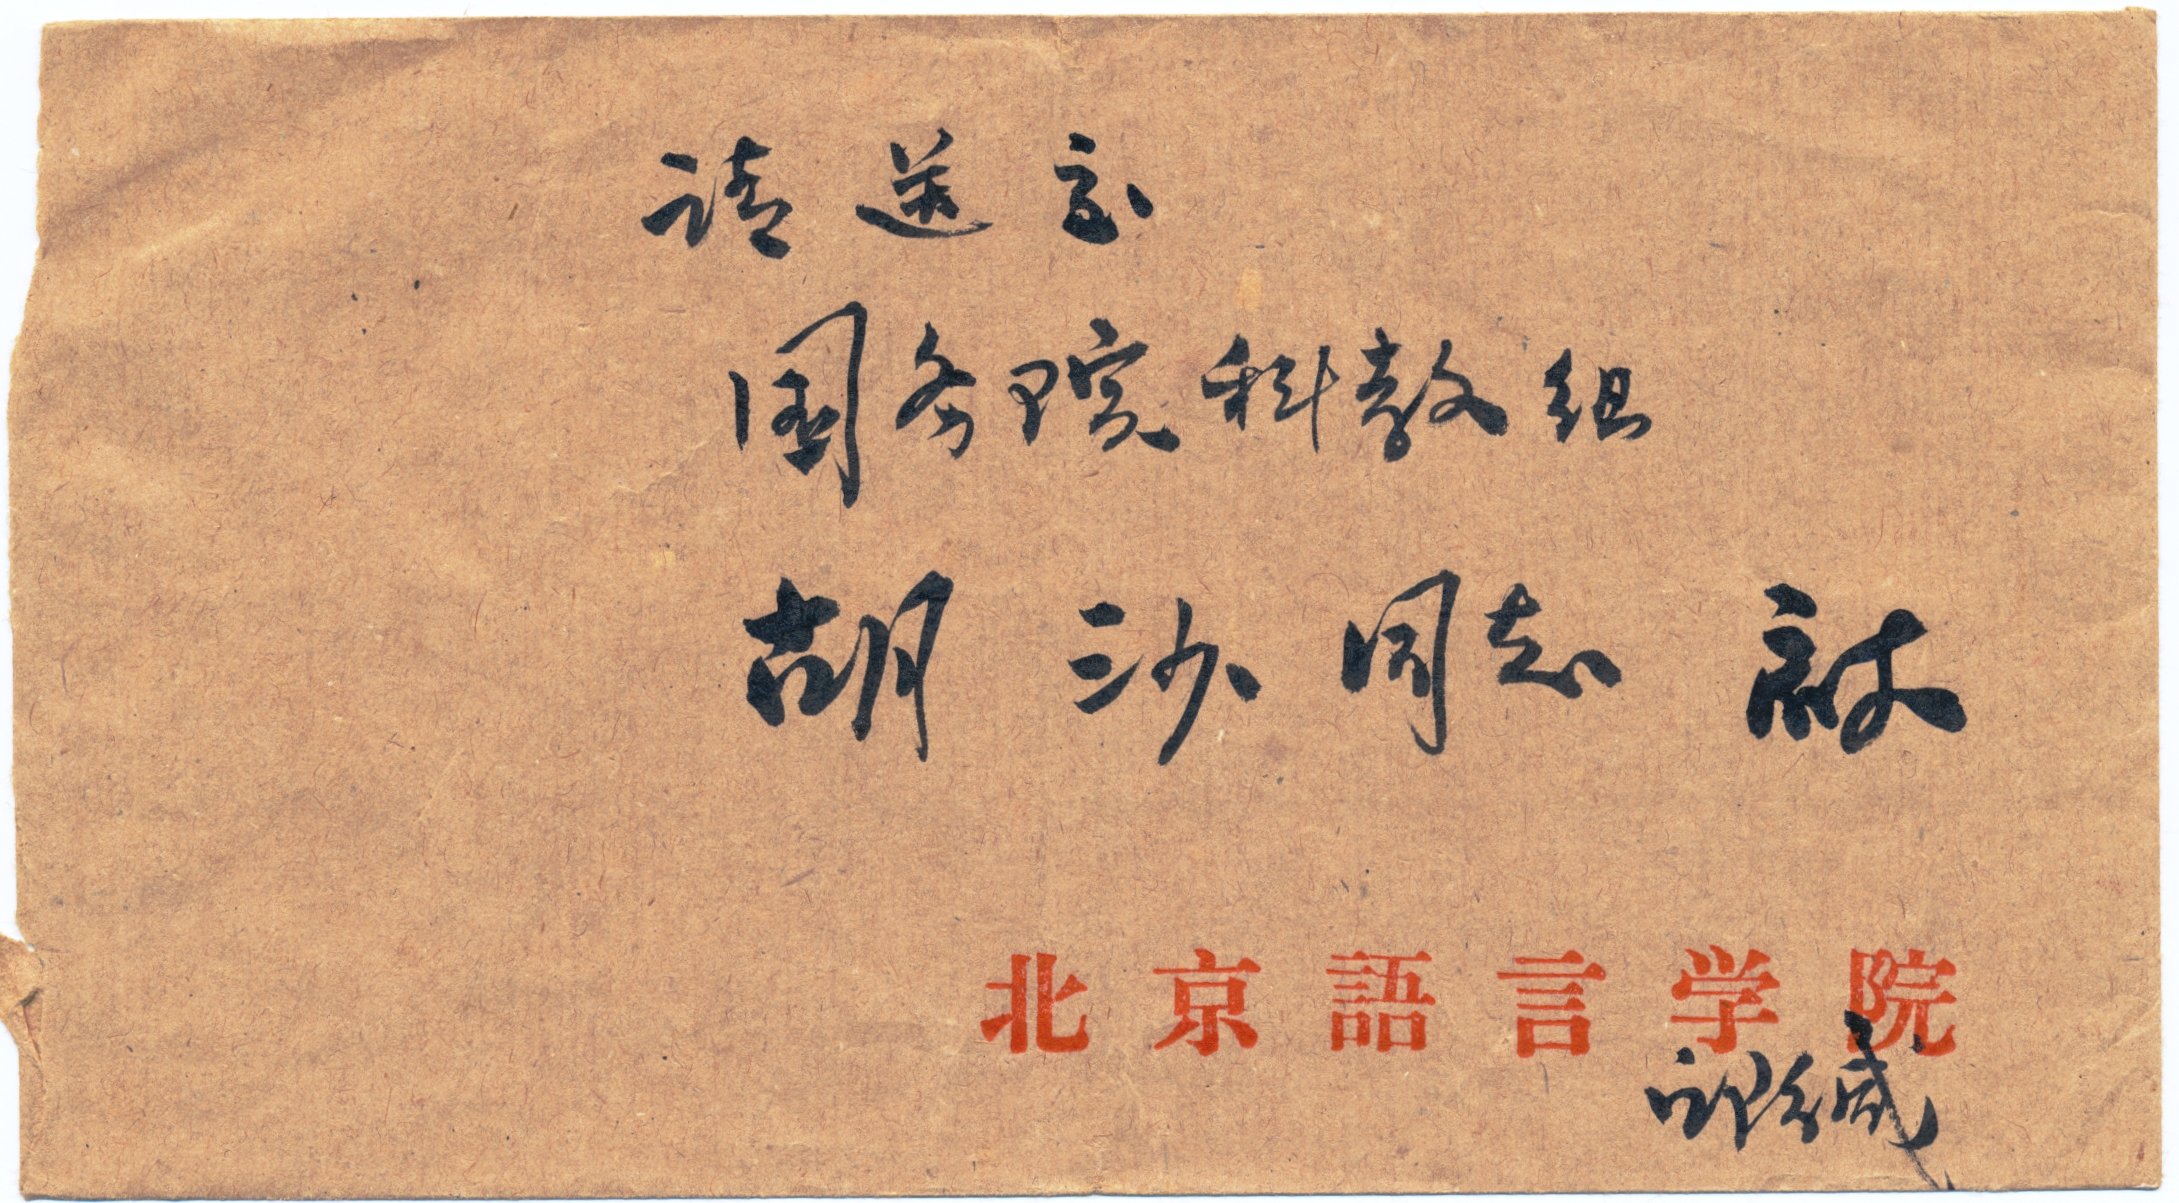 请送交
国务院科教组
胡沙同志
北京語言学院
缄